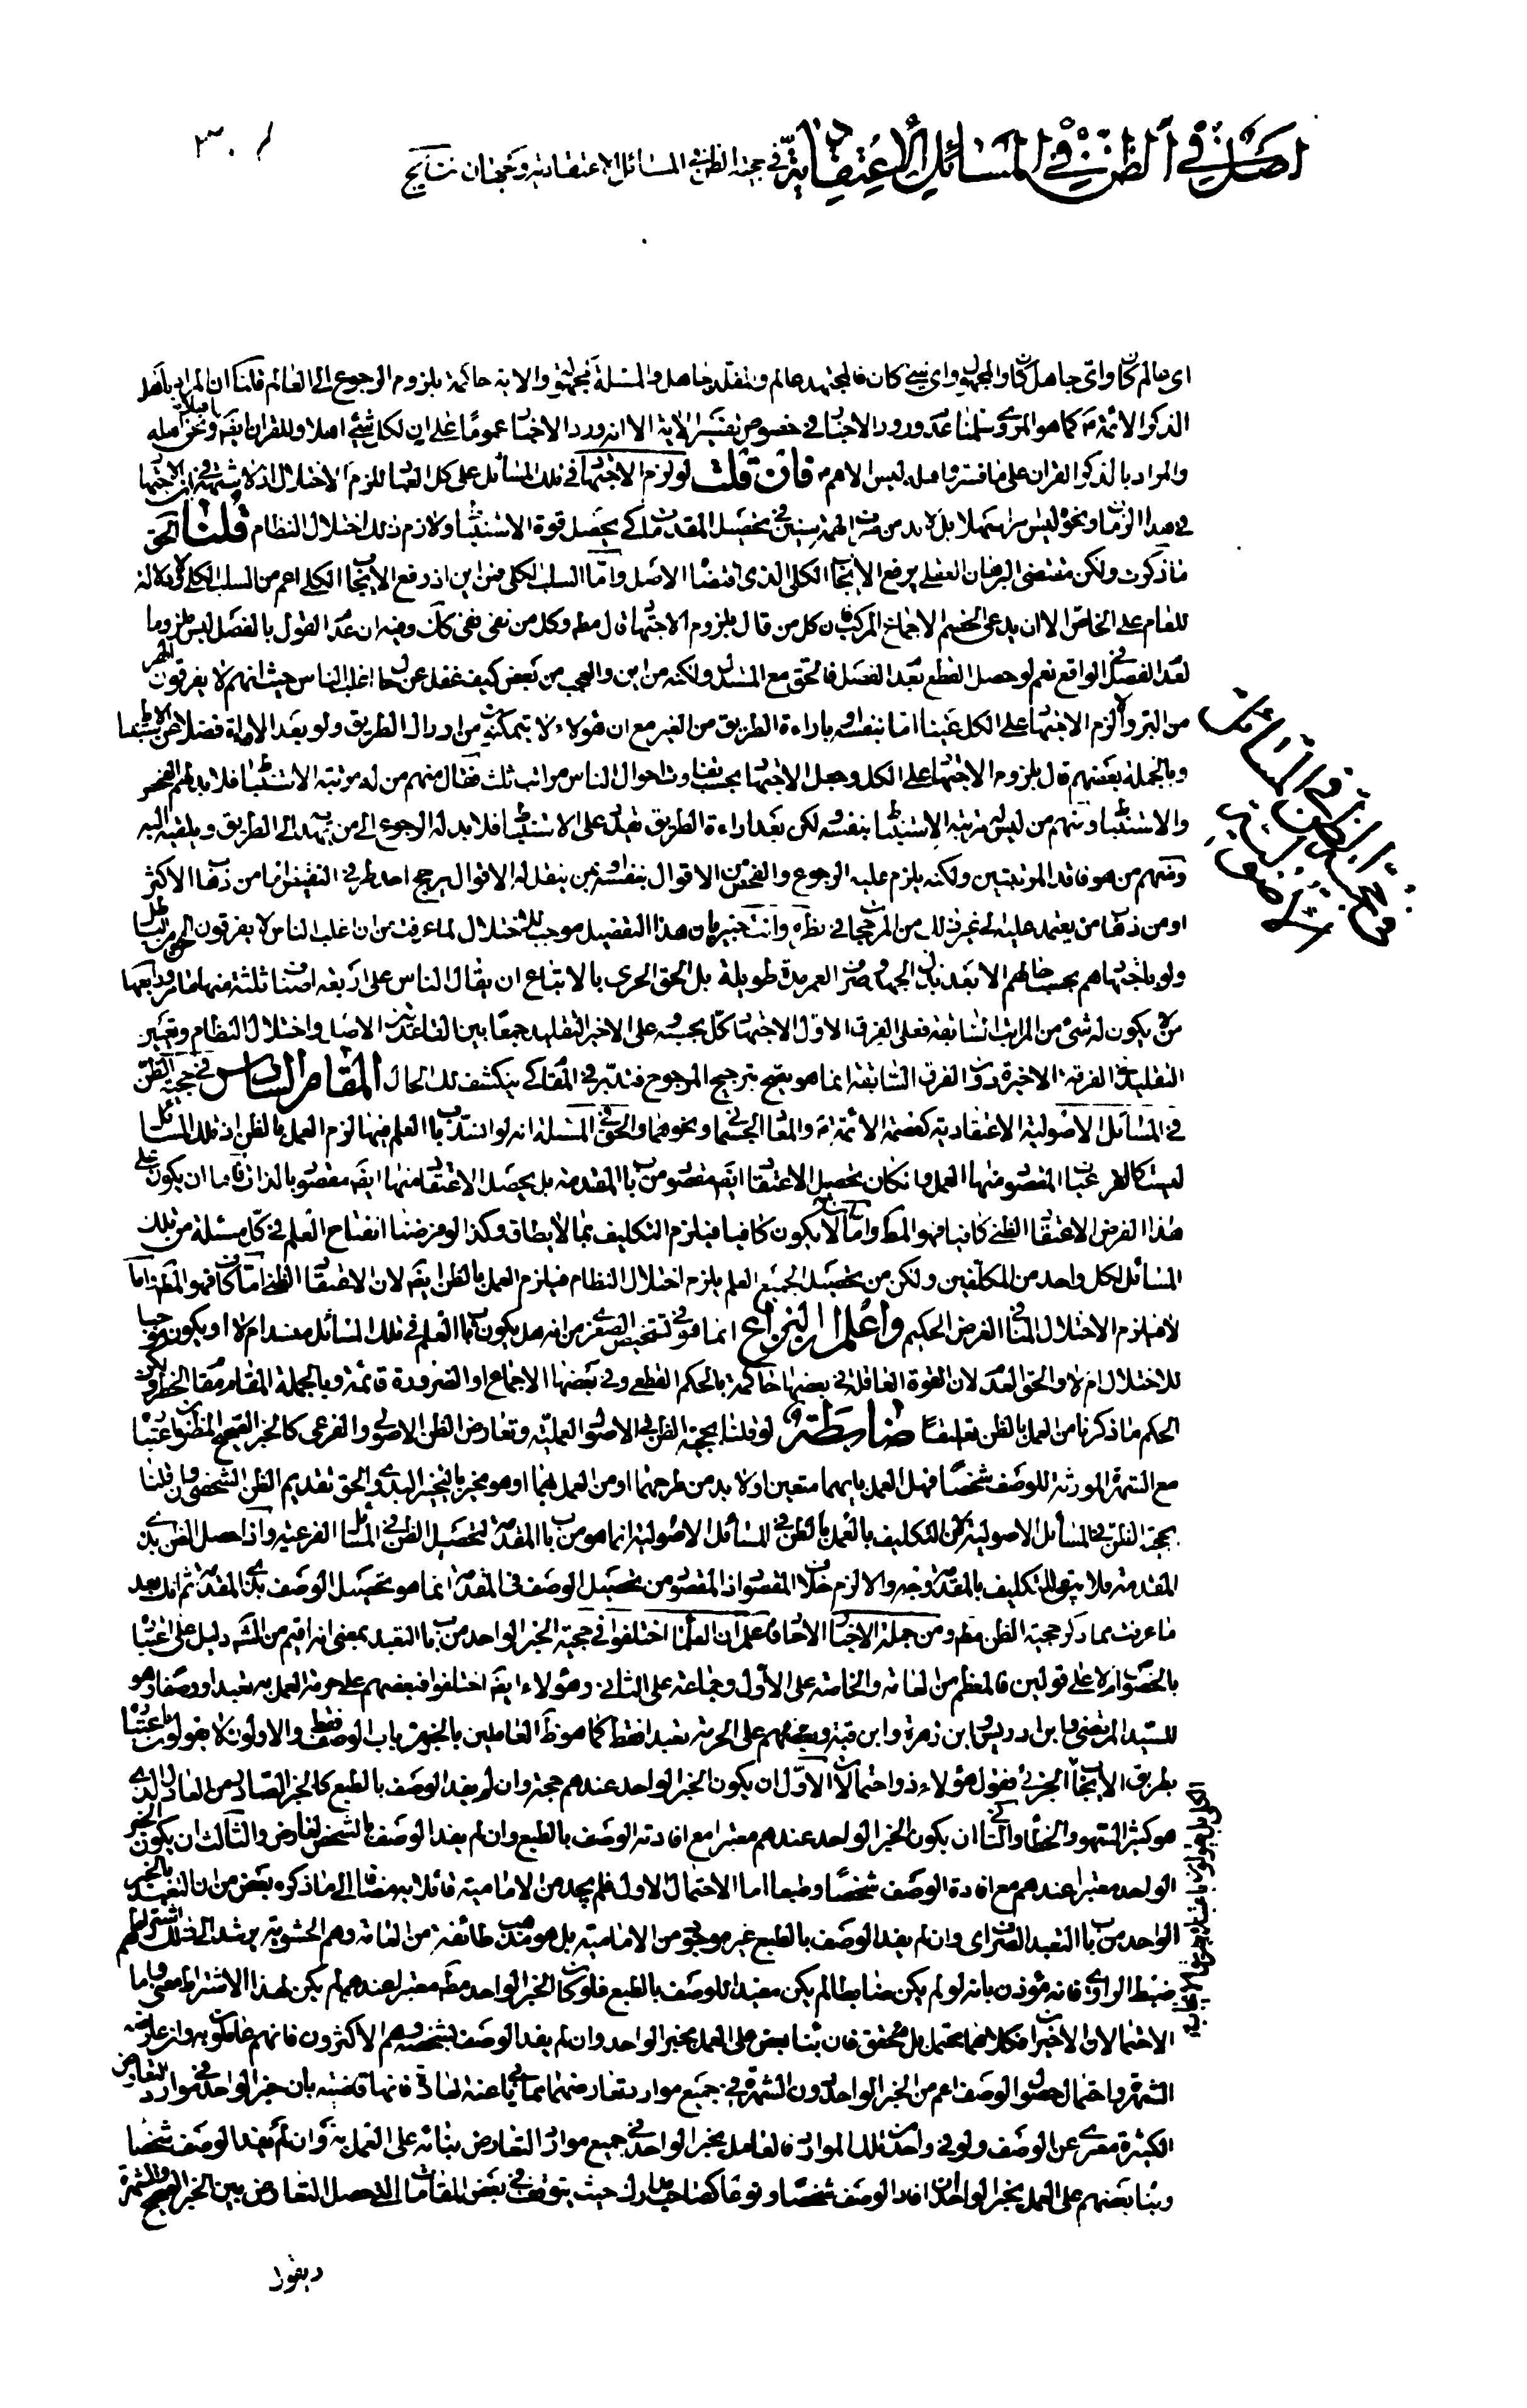 اصل في الظن في المسائل الاعتقادية في حجية الظن في المسائل الاعتقادية وحجية نتايج
٣٠١
اي عالم كان واي جاهل كان والمجهول واي شيء كان فالمجتهد عالم ومقلد جاهل والمسئلة مجهولة والاية حاكمة بلزوم الرجوع الى العالم قلنا ان المراد باهل
الذكر الائمة كما هو المروي سلمنا عدم ورود الاخبار في خصوص تفسير الاية الا انه ورد الاخبار عموما على ان لكل شيء اهلا وللقران ايضا ونحن اهله
والمراد بالذكر القران على ما فسر واهله ليس الا هم فان قلت لو لزم الاجتهاد في تلك المسائل على كل احد للزم الاختلال اذ لا شبهة في ان الاجتهاد
في هذا الزمان ونحوه ليس امرا سهلا بل لا بد من صرف في تحصيل المقدمات كي يحصل قوة الاستنباط ولازم ذلك اختلال النظام قلنا الحق
ما ذكرت ولكن مقتضى البرهان العقلي رفع الايجاب الكلي الذي اقتضاه الاصل واما السلب الكلي فمن اين اذ رفع الايجاب الكلي اعم من السلب الكلي ولا دلالة
للعام على الخاص الا ان يدعي الخصم الاجماع المركب فان كل من قال بلزوم الاجتهاد قال مط وكل من نفى نفى كك وفيه ان عدم القول بالفصل ليس ملزوما
لعدم الفصل في الواقع نعم لو حصل القطع بعدم الفصل فالحق مع المستدل ولكنه من اين والعجب من بعض كيف غفل عن حال اغلب الناس حيث انهم لا يفرقون الهر
من البر والزم الاجتهاد على الكل عينا اما بنفسه او باراءة الطريق من الغير مع ان هؤلاء لا يتمكنون من ادراك الطريق ولو بعد الاراءة فضلا عن الاستنباط
وبالجملة بعضهم قال بلزوم الاجتهاد على الكل وجعل الاجتهاد بحسب تفاوت احوال الناس مراتب ثلث فقال منهم من له مرتبة الاستنباط فلا بد لهم الفحص
والاستنباط ومنهم من ليس له مرتبة الاستنباط بنفسه لكن بعد اراءة الطريق يقدر على الاستنباط فلا بد له الرجوع الى من يهديه الى الطريق ويلقيه اليه
ومنهم من هو فاقد المرتبتين ولكنه يلزم عليه الرجوع والفحص من الاقوال بنفسه او ممن ينقل له الاقوال ليرجح احد طرفي النقيض اما من ذهاب الاكثر
او من ذهاب من يعتمد عليه الى غير ذلك من المرجحات في نظره وانت خبير بان هذا التفصيل موجب للاختلال لما عرفت من ان اغلب الناس لا يفرقون الحق من الباطل
ولو باجتهادهم بحسب حالهم الا بعد بذل الجهد وصرف العمر مدة طويلة بل الحق الحري بالاتباع ان يقال الناس على اربعة اصناف ثلثة منها ما مر ورابعها
من لا يكون له شيء من المراتب السابقة فعلى الفرق الاول الاجتهاد كل بحسبه وعلى الاخير التقليد جمعا بين القاعدتين الاصل واختلال النظام وتعيين
التقليد في الفرقة الاخيرة دون الفرق السابقة انما هو بقبح ترجيح المرجوح فتدبر في المقام كي ينكشف لك الحال المقام السادس في حجية الظن
في المسائل الاصولية الاعتقادية كعصمة الائمة والمعاد الجسماني ونحوهما والحق في المسئلة انه لو انسد باب العلم فيها لزم العمل بالظن اذ تلك المسائل
ليست كالفرعيات المقصود منها العمل وان كان تحصيل الاعتقاد ايضا مقصود من باب المقدمة بل تحصيل الاعتقاد منها ايضا مقصود بالذات فاما ان يكون على
هذا الفرض الاعتقاد الظني كافيا فهو المط واما ان لا يكون كافيا فيلزم التكليف بما لا يطاق وكذا لو فرضنا انفتاح العلم في كل مسئلة من تلك
المسائل لكل واحد من المكلفين ولكن من تحصيل الجميع العلم يلزم اختلال النظام فيلزم العمل بالظن ايضا لان الاعتقاد الظني اما كاف فهو المط واما
لا فيلزم الاختلال المنافي لغرض الحكيم واعلم ان النزاع انما هو في تشخيص الصغرى من انه هل يكون باب العلم في تلك المسائل منسدا ام لا او يكون موجبا
للاختلال ام لا والحق العدم لان القوة العاقلة في بعضها حاكمة بالحكم القطعي وفي بعضها الاجماع او الضرورة قائمة وبالجملة المقام مقام الخطر ولكن
الحكم ما ذكرنا من العمل بالظن تعليقا ضابطة لو قلنا بحجية الظن في الاصول العملية وتعارض الظن الاصولي والفرعي كالخبر الصحيح المظنون اعتباره
مع الشهرة المورثة للوصف شخصا فهل العمل بايهما متعين او لا بد من طرحهما او من العمل بهما او هو مخير بالتخيير البدوي والحق تقديم الظن الشخصي وان قلنا
بحجية الظن في المسائل الاصولية لان التكليف بالعمل بالظن في المسائل الاصولية انما هو من باب المقدمة لتحصيل الظن في المسائل الفرعية واذا حصل الظن بدون
المقدمة فلا يبقى للتكليف بالمقدمة وجه والا لزم خلاف المقصود اذ المقصود من تحصيل الوصف في المقدمة انما هو تحصيل الوصف بذي المقدمة ثم انك بعد
ما عرفت مما ذكر حجية الظن مط ومن جملته الاخبار الاحاد فاعلم ان العلماء اختلفوا في حجية الخبر الواحد من باب التعبد بمعنى انه اقيم من الشرع دليل على اعتباره
بالخصوص ام لا على قولين فالمعظم من العامة والخاصة على الاول وجماعة على الثاني وهؤلاء ايضا اختلفوا فبعضهم على حرمة العمل به تعبدا ووصفا وهو
للسيد المرتضى وابن ادريس وابن زهرة وابن قبة وبعضهم على الحرمة تعبدا فقط كما هو ظ العاملين بالخبر من باب الوصف فقط والاولون لا يقولون باعتباره
بطريق الايجاب الجزئي فقول هؤلاء ذو احتمالات الاول ان يكون الخبر الواحد عندهم حجة وان لم يفد الوصف بالطبع كالخبر الصادر من العادل الذي
هو كثير السهو والخطاء والثاني ان يكون الخبر الواحد عندهم معتبرا مع افادته الوصف بالطبع وان لم يفد الوصف بالشخص لعارض والثالث ان يكون الخبر
الواحد معتبرا عندهم مع افادة الوصف شخصا وطبعا اما الاحتمال الاول فلم يجد من الامامية قائلا به مضافا الى ما ذكره بعض من ان التعبد بالخبر
الواحد من باب التعبد الصرف اي وان لم يفد الوصف بالطبع غير موجود من الامامية بل هو مذهب طائفة من العامة وهم الحشوية يرشد الى ذلك اشتراطهم
ضبط الراوي فانه مؤذن بانه لو لم يكن ضابطا لم يكن مفيدا للوصف بالطبع فلو كان الخبر الواحد مط معتبرا عندهم لم يكن لهذا الاشتراط معنى واما
الاحتمالان الاخيران فكلاهما محتمل بل محقق فان بناء بعض على العمل بخبر الواحد وان لم يفد الوصف بشخصه وهم الاكثرون فانهم عاملون به وان عارضه
الشهرة واحتمال حصول الوصف اعم من الخبر الواحد دون الشهرة في جميع موارد تعارضهما مما ياباه عنه العادة فانها قاضية بان خبر الواحد في موارد التعارض
الكثيرة معرى عن الوصف ولو في واحد من تلك الموارد فالعامل بخبر الواحد في جميع موارد التعارض بنائه على العمل به وان لم يفد الوصف شخصا
وبناء بعضهم على العمل بخبر الواحد ان افاد الوصف شخصا ونوعا كصاحب المدارك حيث يتوقف في بعض المقامات التي حصل التعارض بين الخبر الصحيح والشهرة
في حجية الظن في المسائل
ويقول